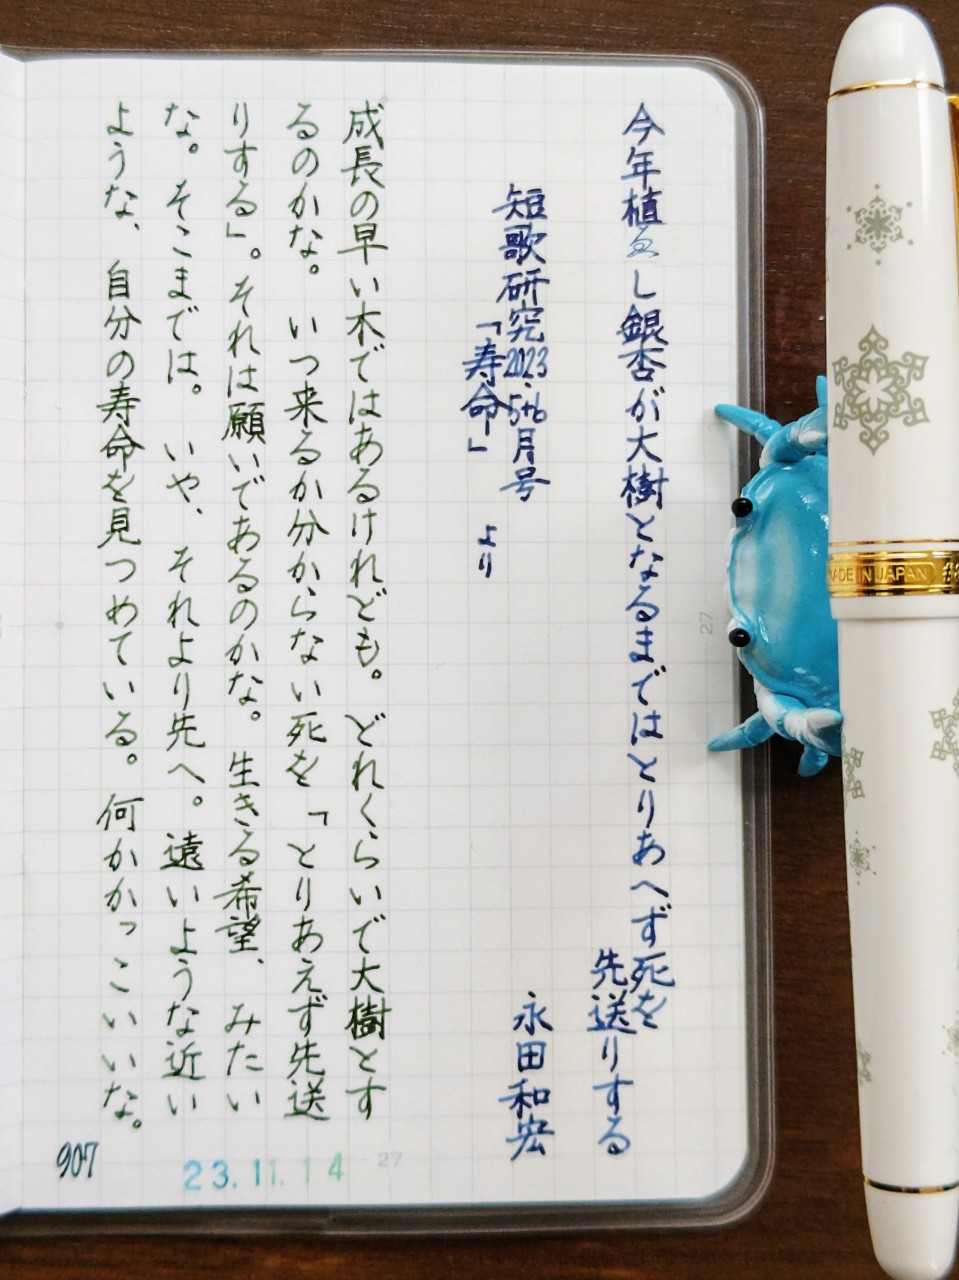 今年植ゑし銀杏が大樹となるまではとりあへず死を
先送りする
短歌研究2023.5+6月号
「寿命」 より
永田和宏
成長の早い木ではあるけれども。どれくらいで大樹とす
るのかな。いつ来るか分からない死を「とりあえず先送
りする」。それは願いであるのかな。生きる希望、みたい
な。そこまでは。いや、それより先へ。遠いような近い
ような、自分の寿命を見つめている。何かかっこいいな。
907
23.11.14
27
27
MADE IN JAPAN